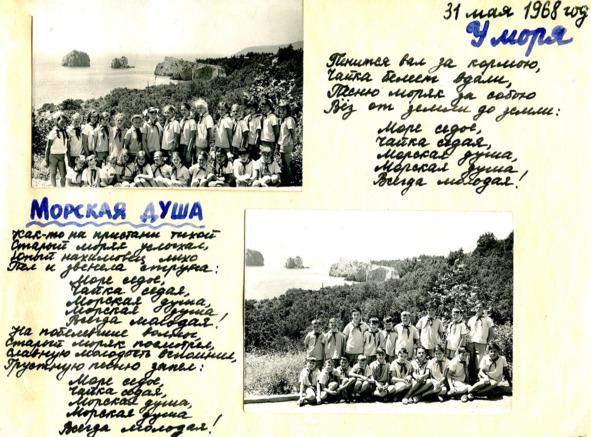 31 мая 1968 год
У моря
Пенится вал за кормою,
Чайка белеет вдали,
Песню моряк за собою
Вёз от земли до земли:
Море седое,
Чайка седая,
Морская душа,
Морская душа
Всегда молодая!
МОРСКАЯ ДУША
Как-то на пристани тихой
Старый моряк услыхал,
Юный нахимовец лихо
Пел и звенела струна:
Море седое,
Чайка седая,
Морская душа,
Морская душа
Всегда молодая!
На побелевшие волны
Старый моряк посмотрел,
Славную молодость вспомнил,
Грустную песню запел:
Море седое,
Чайка седая,
Морская душа,
Морская душа
Всегда молодая!